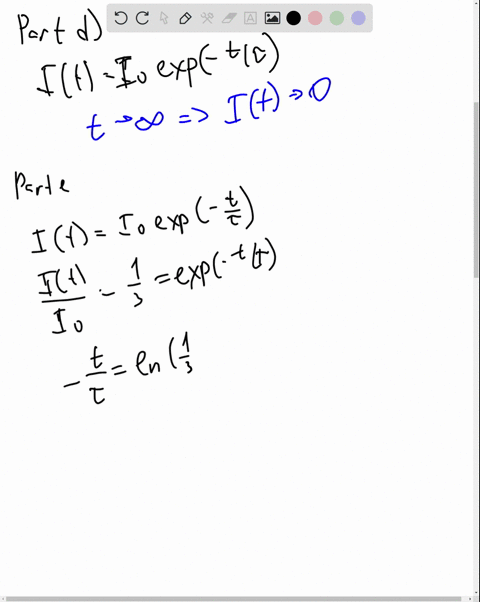 Part d)
I(t) = I₀ exp(-t/τ)
t → ∞ => I(t) → 0
Part e
I(t) = I₀ exp(-t/τ)
I(t)/I₀ = 1/3 = exp(-t/τ)
-t/τ = ln(1/3